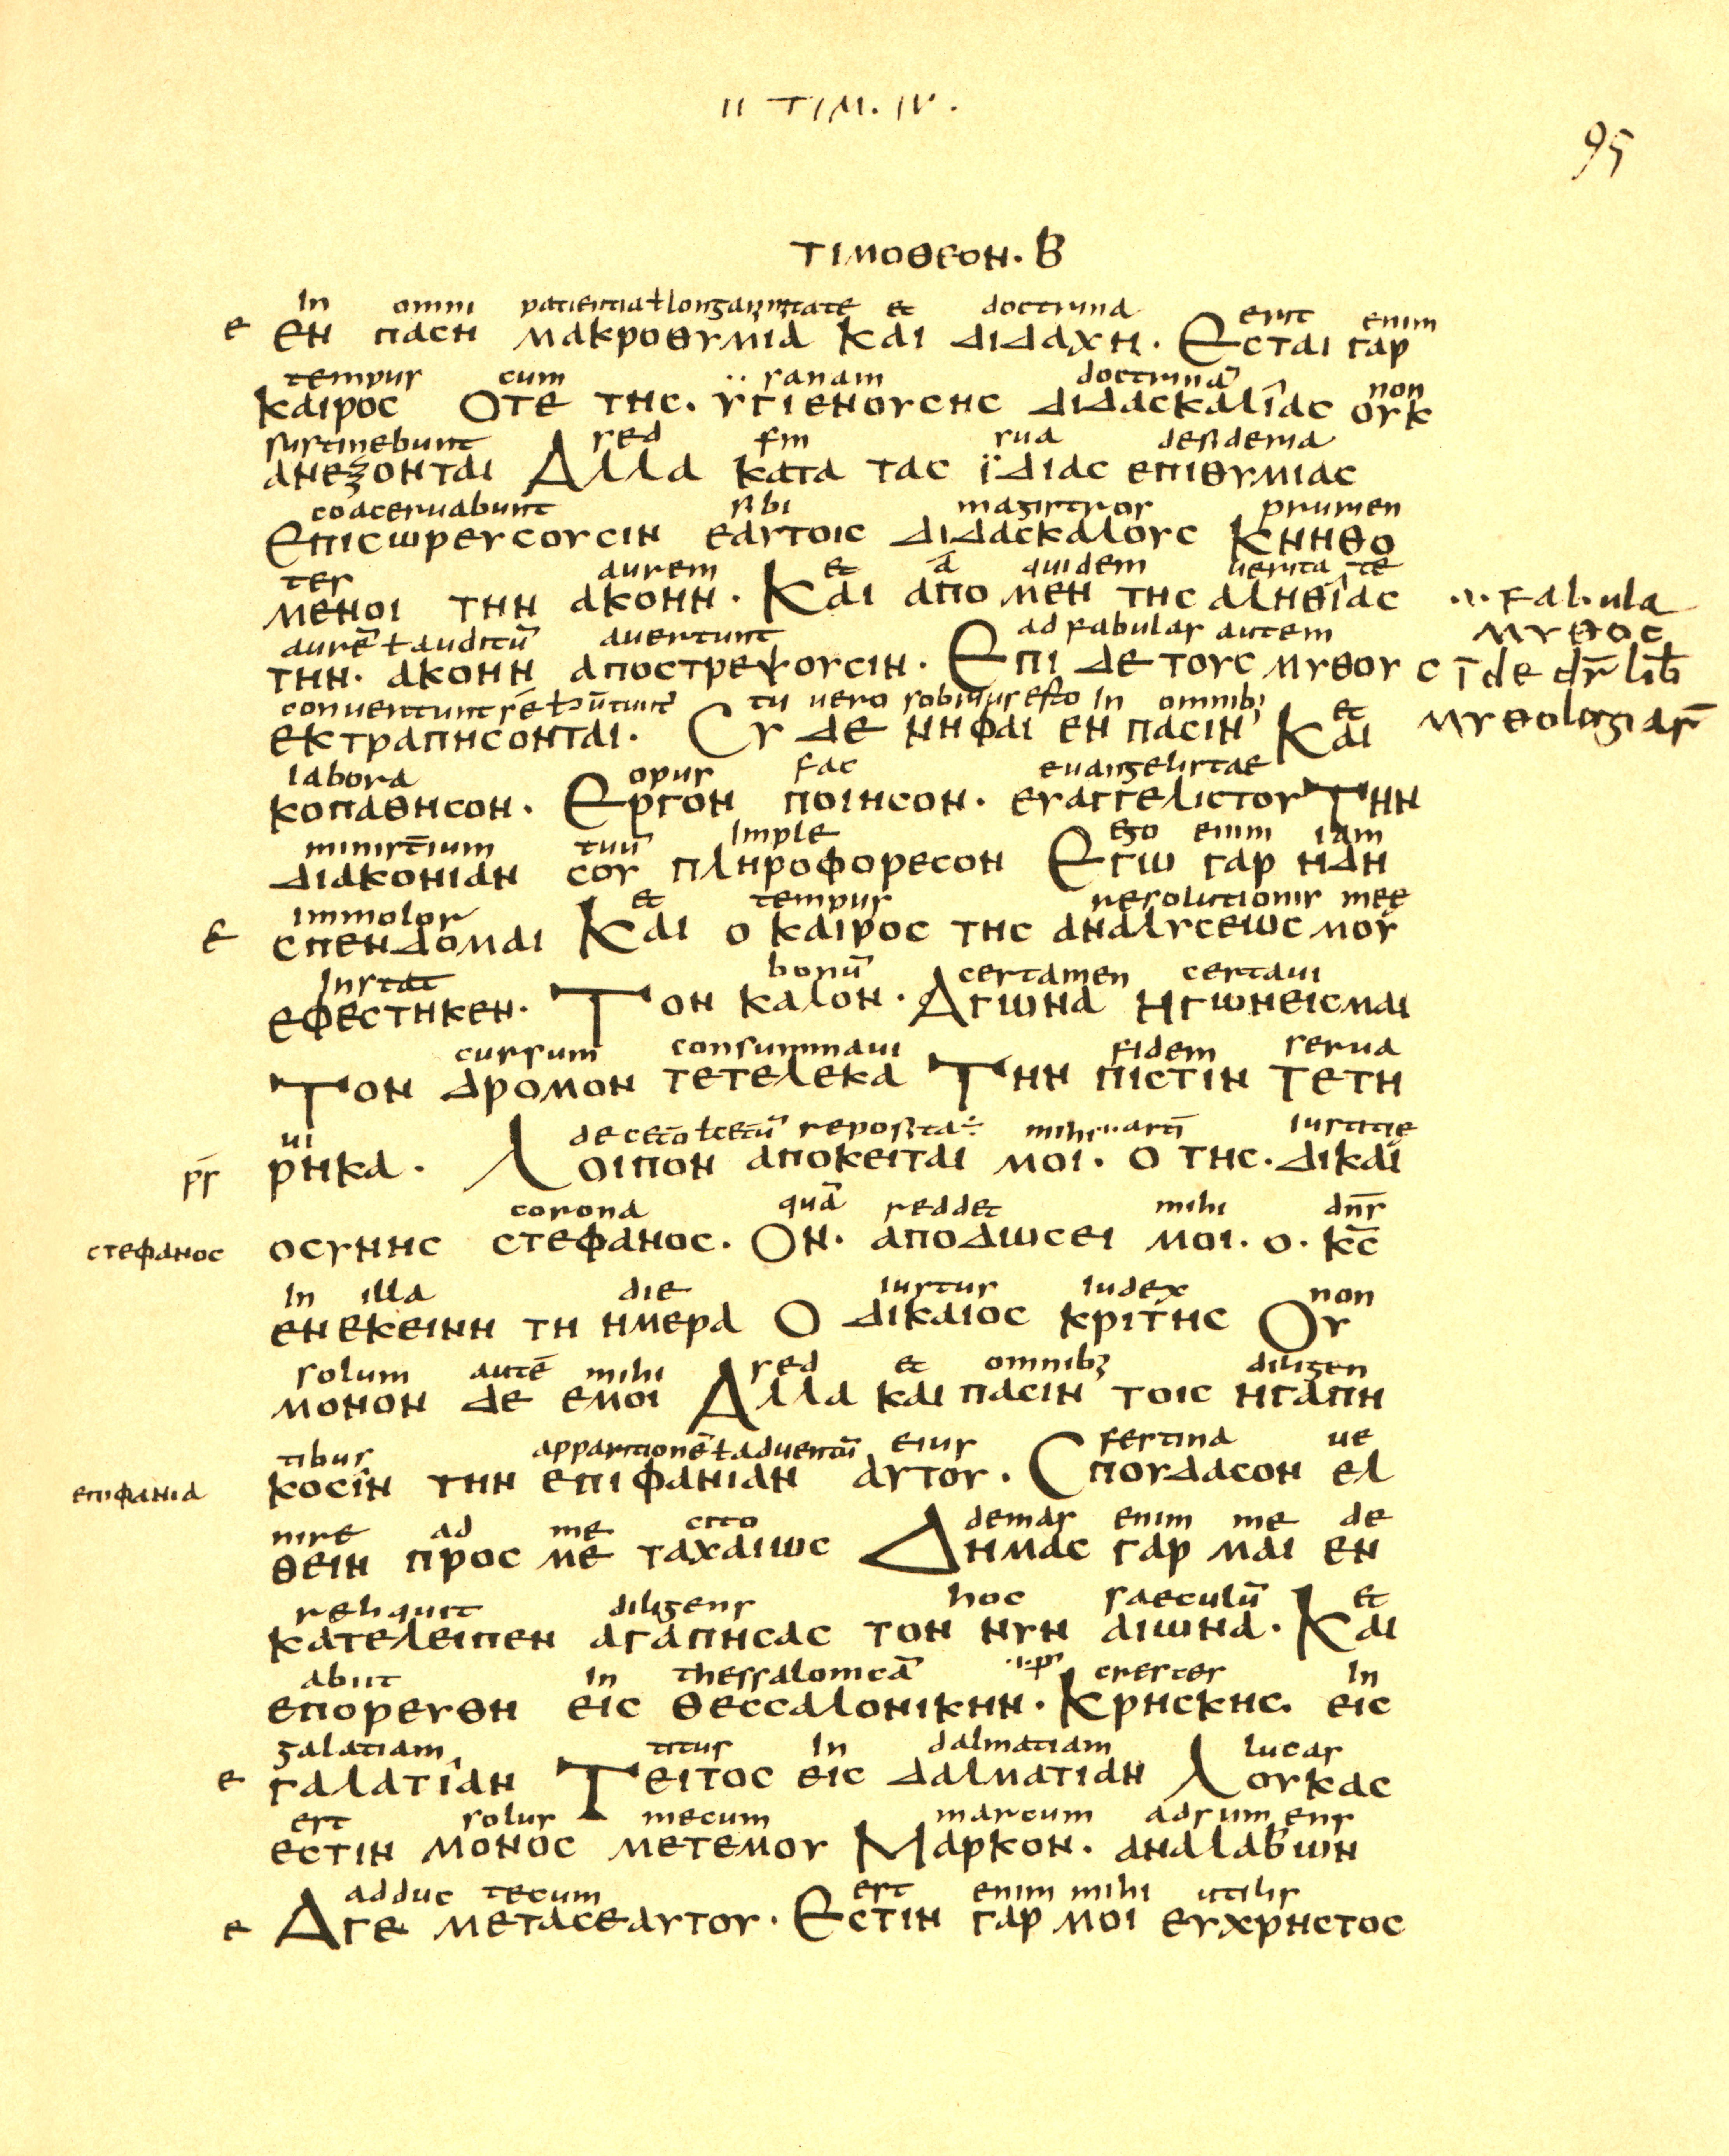 II TIM. IV.
95
ΤΙΜΟΘΕΟΝ. Β
In omni patientia ł longanimitate et doctrina erit enim
ε εν παση μακροθυμια Και διδαχη. Εσται γαρ
tempus cum ·· sanam doctrinā non
καιρος Οτε της. υγιενουσης διδασκαλιας ουκ
sustinebunt sed sua desideria
ανεξονται Αλλα κατα τας ϊδιας επιθυμιας
coacervabunt sibi magistros prurien
Επισωρευσουσιν εαυτοις διδασκαλους Κνηθο
ter aurem et ā quidem veritate
μενοι την ακοην. Και απο μεν της αληθιας ·ı· fabula
aurē ł auditū avertunt ad fabulas autem μυθος
την. ακοην αποστρεψουσιν. Επι δε τους μυθους īde dr̄ lib̄
tu vero sobrius esto In omnib; et μυθologiar̄
εκτραπησονται. Συ δε νηφαι εν πασιν Και
labora opus fac evangelistae
κοπαθησον. Εργον ποιησον. ευαγγελιστου Την
ministeium tuū Imple Ego enim iam
διακονιαν σου πληροφορεσον Εγω γαρ ηδη
immolor et tempus resolutionis mee
ε σπενδομαι Και ο καιρος της αναλυσεως μου
Instat bonū certamen certavi
εφεστηκεν. Τον καλον. Αγωνα Ηγωνεισμαι
cursum consummavi fidem serva
Τον δρομον τετελεκα Την πιστιν τετη
vi reposita mihi iustitie
ρηκα. Λοιπον αποκειται μοι. ο της. δικαι
corona quā reddet mihi dn̄s
στεφανος οσυνης στεφανος. Ον. αποδωσει μοι. ο. κ̄ς
In illa die iustus Iudex non
εν εκεινη τη ημερα Ο δικαιος κριτης Ου
solum autē mihi sed et omnib; diligen
μονον δε εμοι Αλλα και πασιν τοις ηγαπη
tibus apparitionē ł adventū eius festina ve
επιφανια κοσιν την επιφανιαν αυτου. Σπουδασον ελ
nire ad me cito demas enim me de
θειν προς με ταχαιως Δημας γαρ μαι εν
reliquit diligens hoc saeculū et
κατελειπεν αγαπησας τον νυν αιωνα. Και
abiit In thessalonicā cresces In
επορευθη εις θεσσαλονικην. Κρησκης. εις
galatiam titus In dalmatiam lucas
ε γαλατιαν Τειτος εις δαλματιαν Λουκας
est solus mecum marcum adsumens
εστιν μονος μετ εμου Μαρκον. αναλαβων
adduc tecum est enim mihi utilis
ε Αγε μετα σεαυτου. Εστιν γαρ μοι ευχρηστος